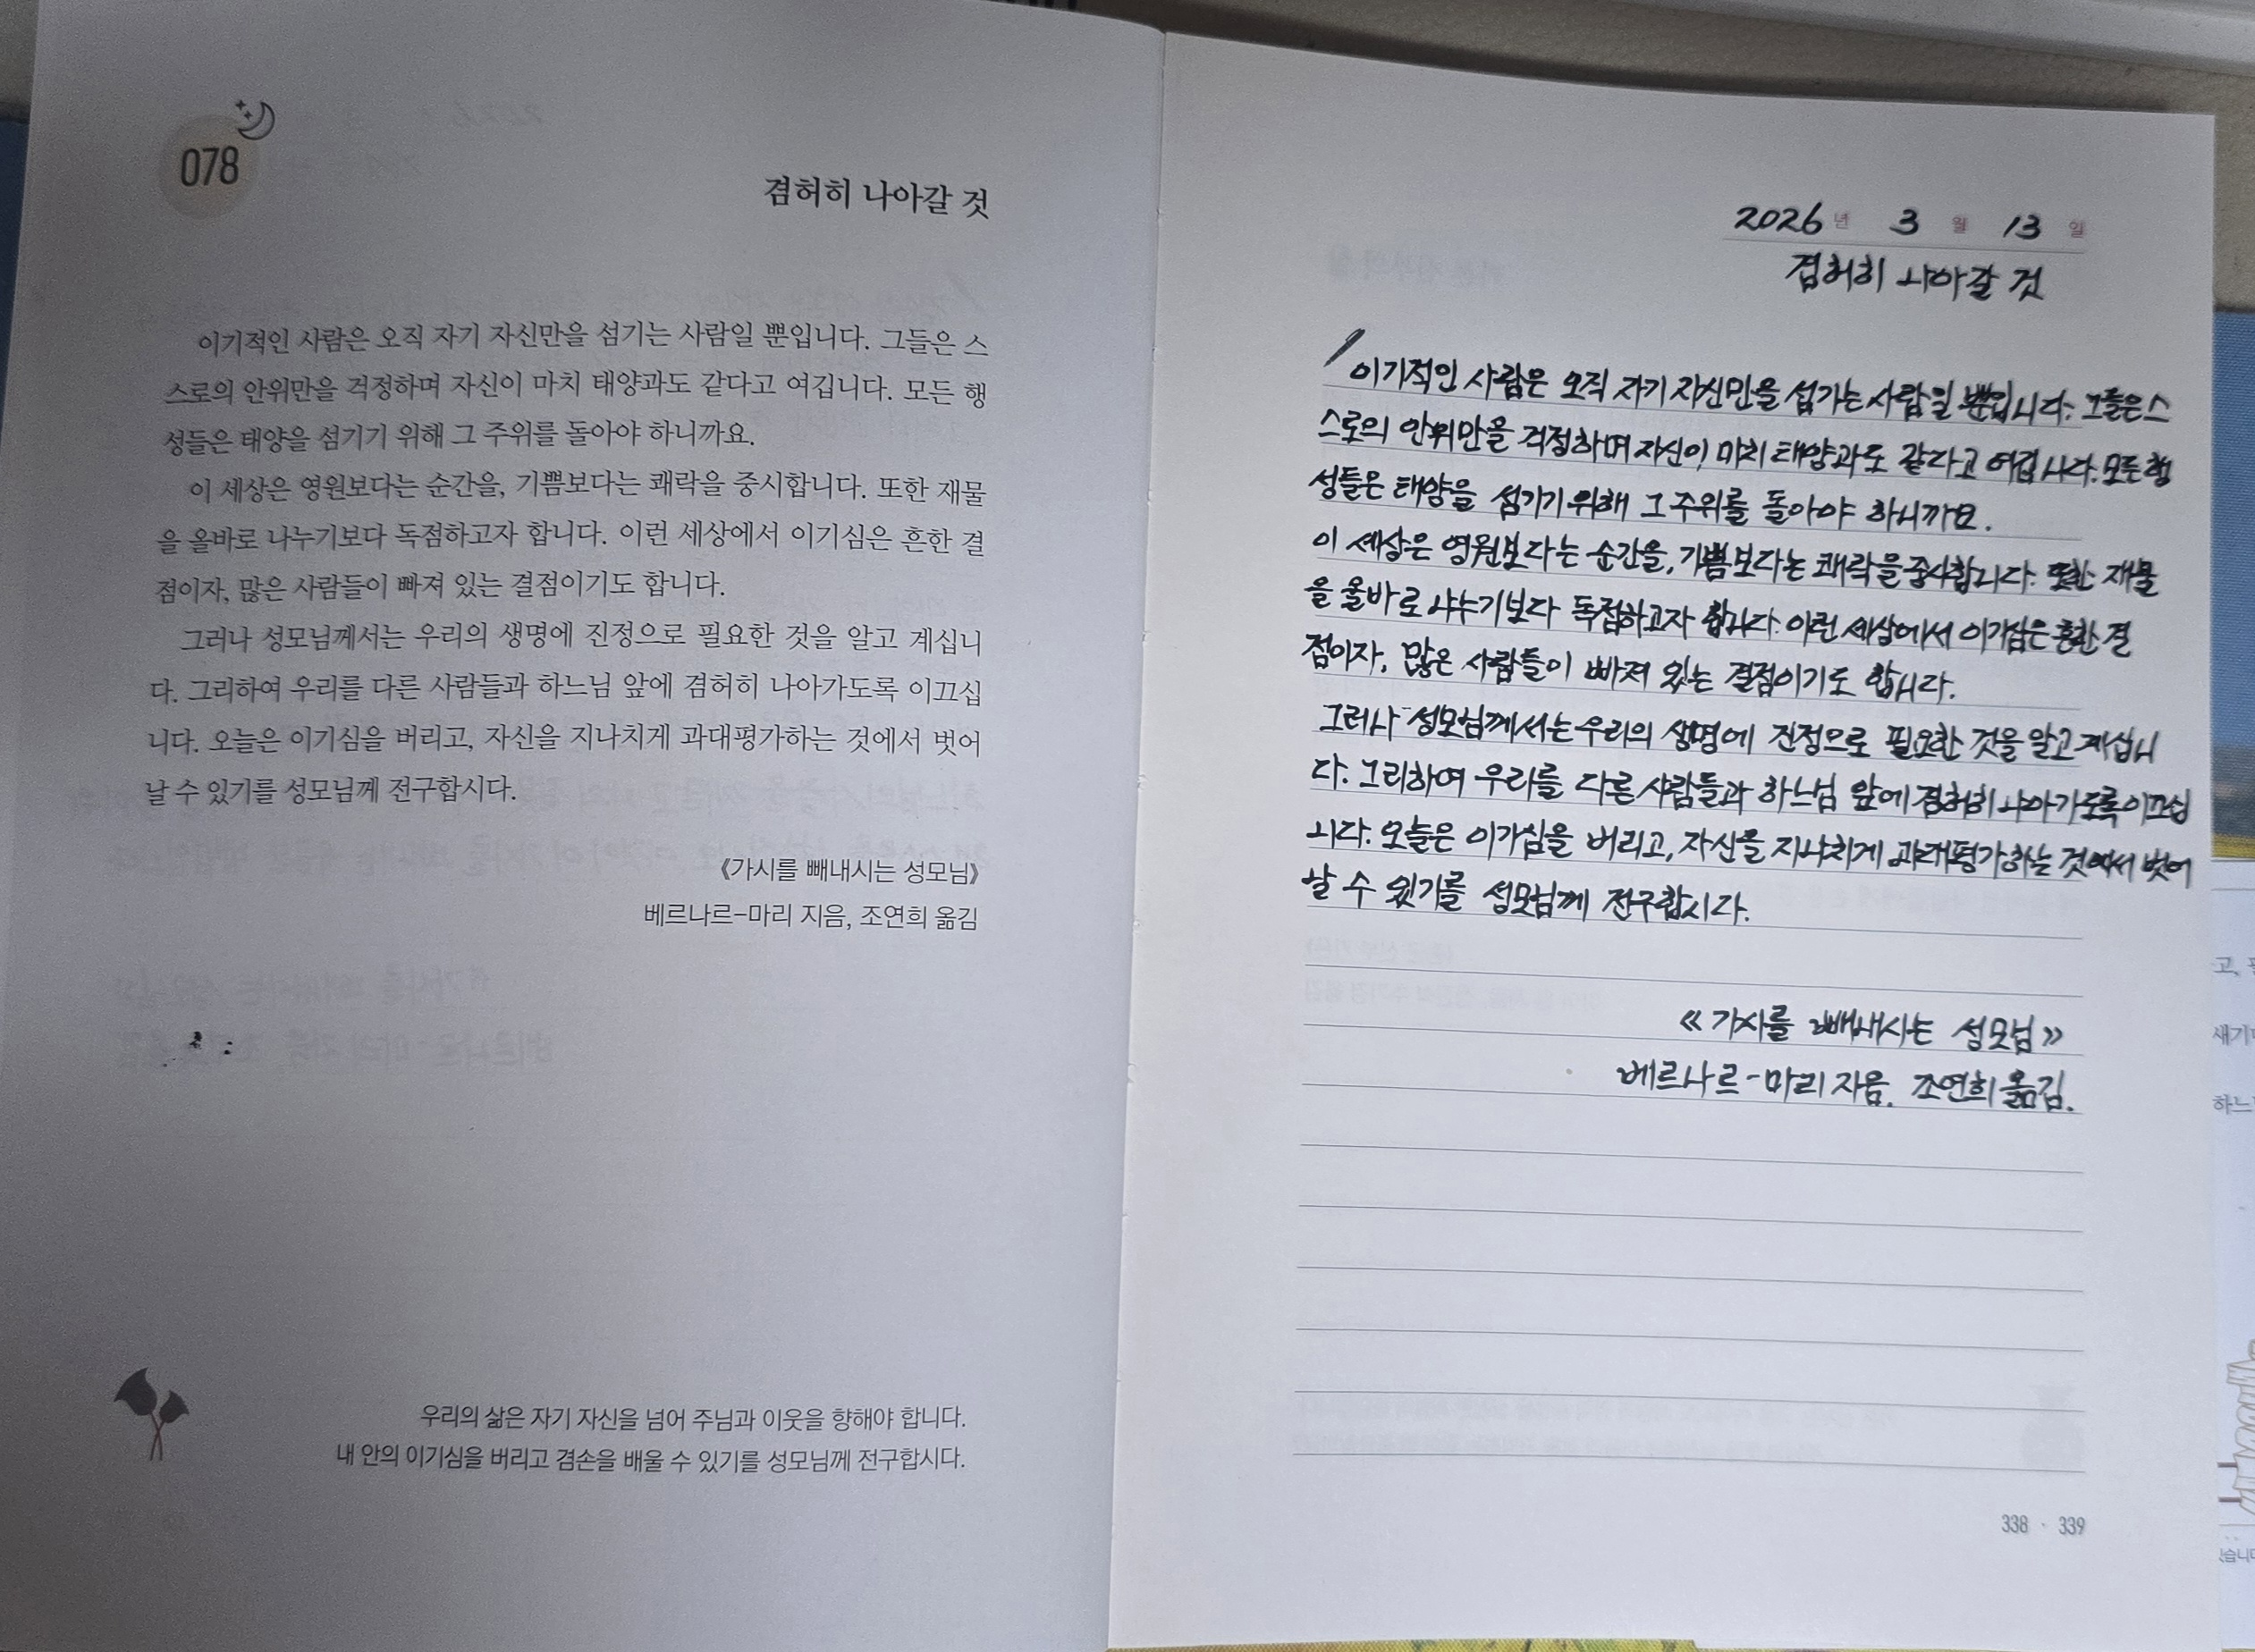 078
겸허히 나아갈 것
이기적인 사람은 오직 자기 자신만을 섬기는 사람일 뿐입니다. 그들은 스
스로의 안위만을 걱정하며 자신이 마치 태양과도 같다고 여깁니다. 모든 행
성들은 태양을 섬기기 위해 그 주위를 돌아야 하니까요.
이 세상은 영원보다는 순간을, 기쁨보다는 쾌락을 중시합니다. 또한 재물
을 올바로 나누기보다 독점하고자 합니다. 이런 세상에서 이기심은 흔한 결
점이자, 많은 사람들이 빠져 있는 결점이기도 합니다.
그러나 성모님께서는 우리의 생명에 진정으로 필요한 것을 알고 계십니
다. 그리하여 우리를 다른 사람들과 하느님 앞에 겸허히 나아가도록 이끄십
니다. 오늘은 이기심을 버리고, 자신을 지나치게 과대평가하는 것에서 벗어
날 수 있기를 성모님께 전구합시다.
《가시를 빼내시는 성모님》
베르나르-마리 지음, 조연희 옮김
우리의 삶은 자기 자신을 넘어 주님과 이웃을 향해야 합니다.
내 안의 이기심을 버리고 겸손을 배울 수 있기를 성모님께 전구합시다.
2026년 3월 13일
겸허히 나아갈 것
이기적인 사람은 오직 자기 자신만을 섬기는 사람일 뿐입니다. 그들은 스
스로의 안위만을 걱정하며 자신이 마치 태양과도 같다고 여깁니다. 모든 행
성들은 태양을 섬기기 위해 그 주위를 돌아야 하니까요.
이 세상은 영원보다는 순간을, 기쁨보다는 쾌락을 중시합니다. 또한 재물
을 올바로 나누기보다 독점하고자 합니다. 이런 세상에서 이기심은 흔한 결
점이자, 많은 사람들이 빠져 있는 결점이기도 합니다.
그러나 성모님께서는 우리의 생명에 진정으로 필요한 것을 알고 계십니
다. 그리하여 우리를 다른 사람들과 하느님 앞에 겸허히 나아가도록 이끄십
니다. 오늘은 이기심을 버리고, 자신을 지나치게 과대평가하는 것에서 벗어
날 수 있기를 성모님께 전구합시다.
《가시를 빼내시는 성모님》
베르나르-마리 지음. 조연희 옮김.
338 · 339
고,
하느